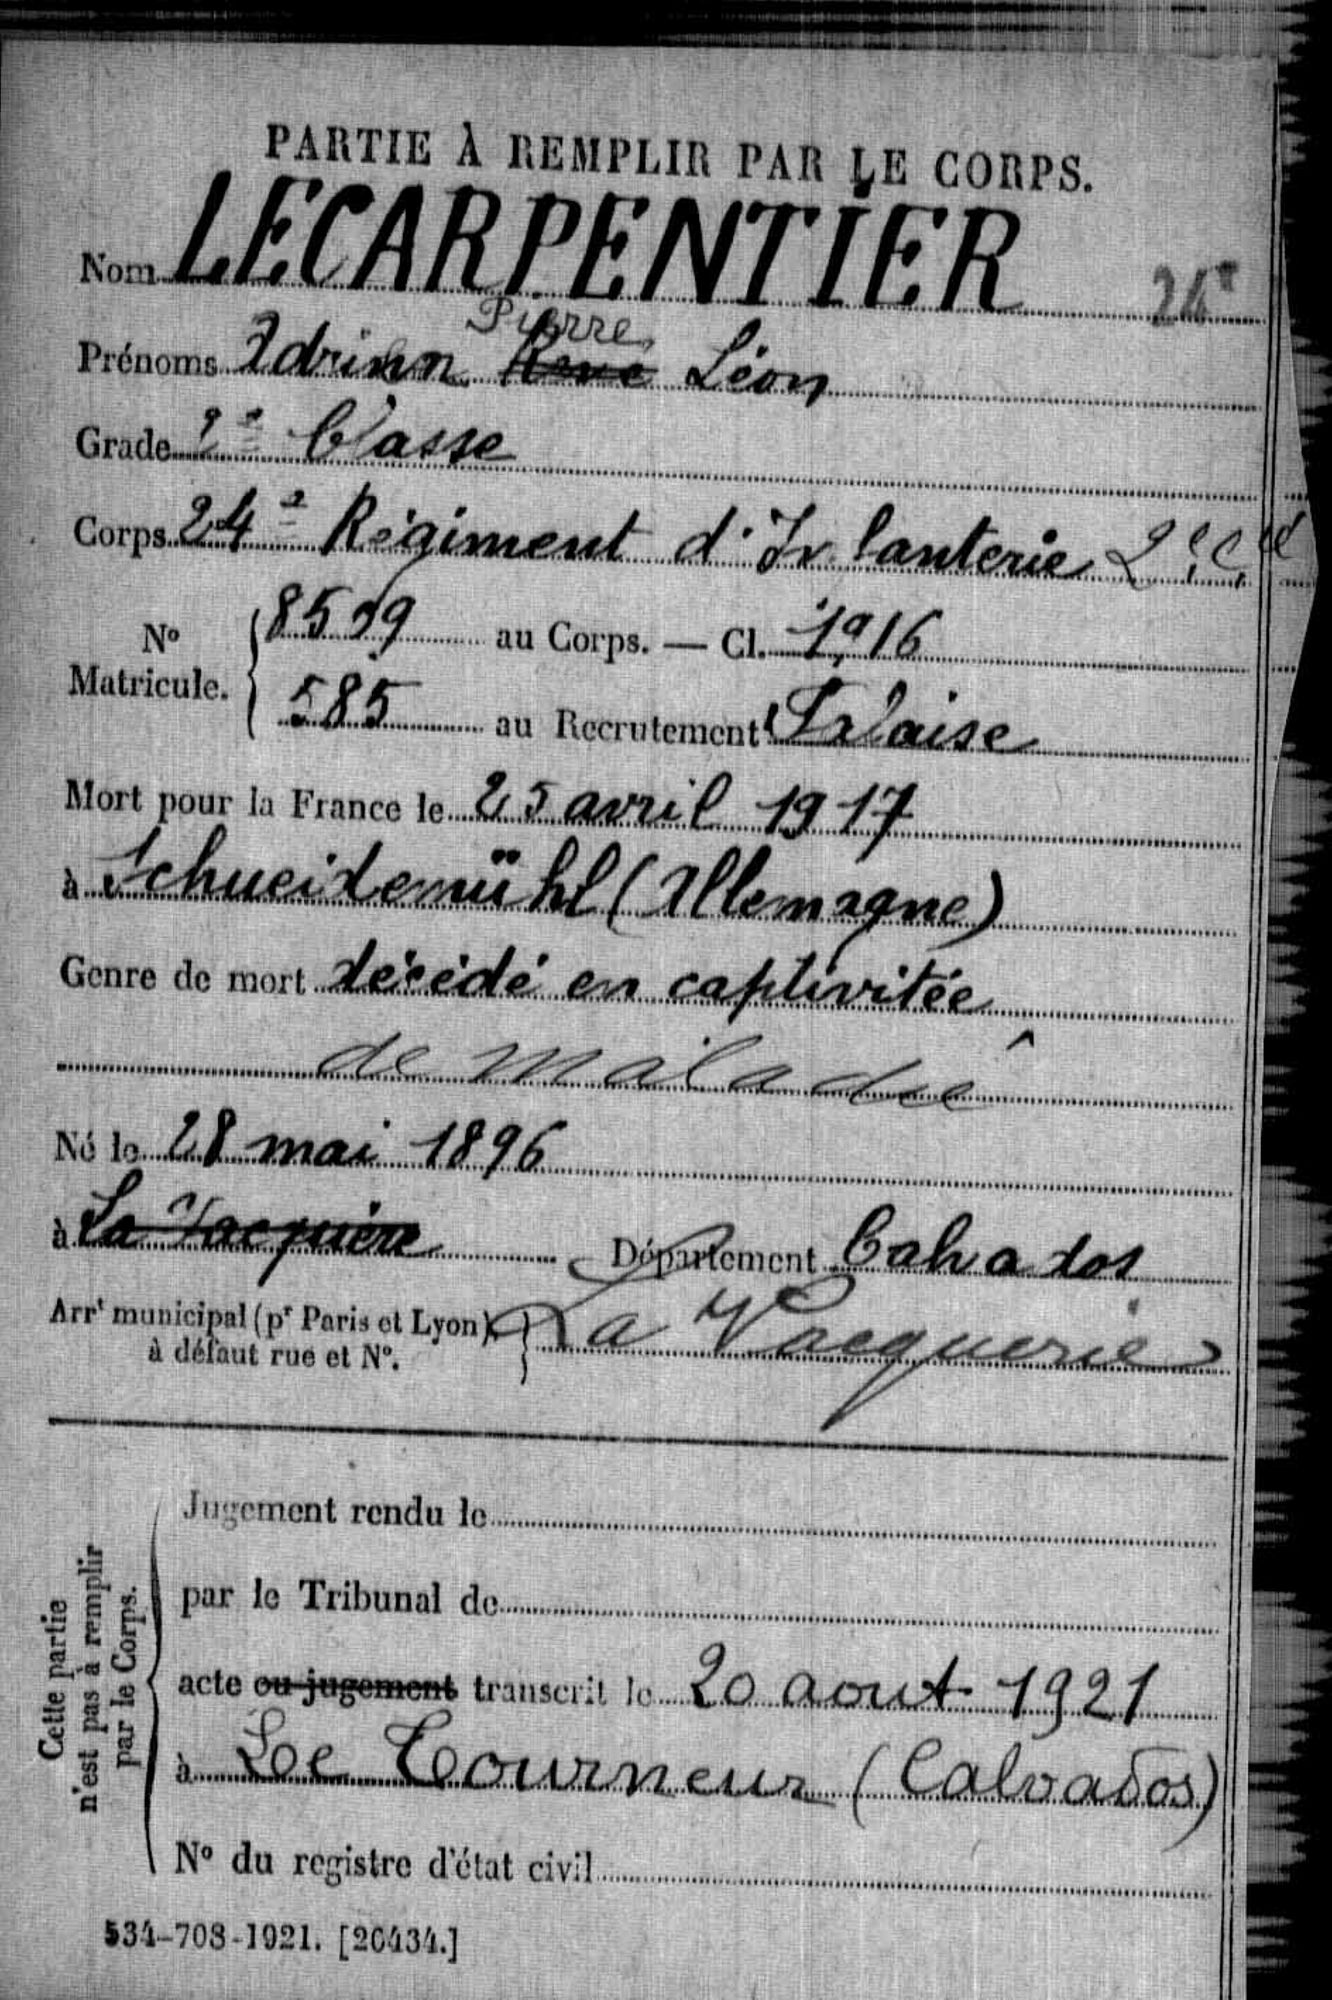 PARTIE À REMPLIR PAR LE CORPS.
Nom LECARPENTIER
24e
Pierre
Prénoms Adrien René Léon
Grade 2e Classe
Corps 24e Régiment d'Infanterie 2e Cie
No Matricule. 8519 au Corps. — Cl. 1916
585 au Recrutement Falaise
Mort pour la France le 25 avril 1917
à Schneidemühl (Allemagne)
Genre de mort décédé en captivitée
de maladie
Né le 28 mai 1896
à La Vacquière Département Calvados
Arrt municipal (pr Paris et Lyon), à défaut rue et No. La Vacquerie
Cette partie n'est pas à remplir par le Corps.
Jugement rendu le
par le Tribunal de
acte ou jugement transcrit le 20 aout 1921
à Le Tourneur (Calvados)
No du registre d'état civil
534-708-1921. [26434.]